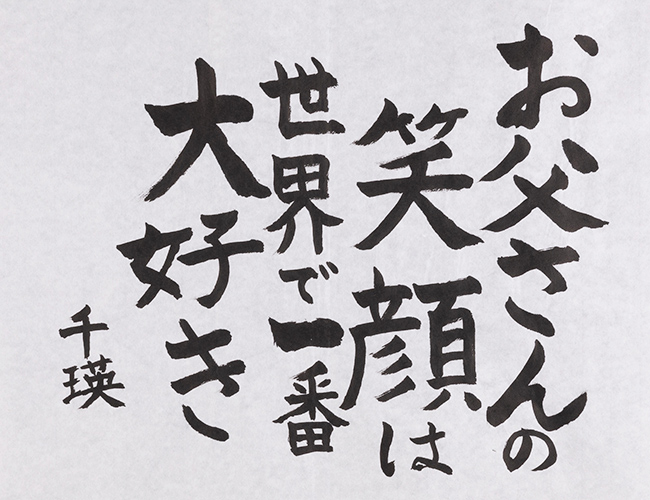 お父さんの
笑顔は
世界で一番
大好き
千瑛